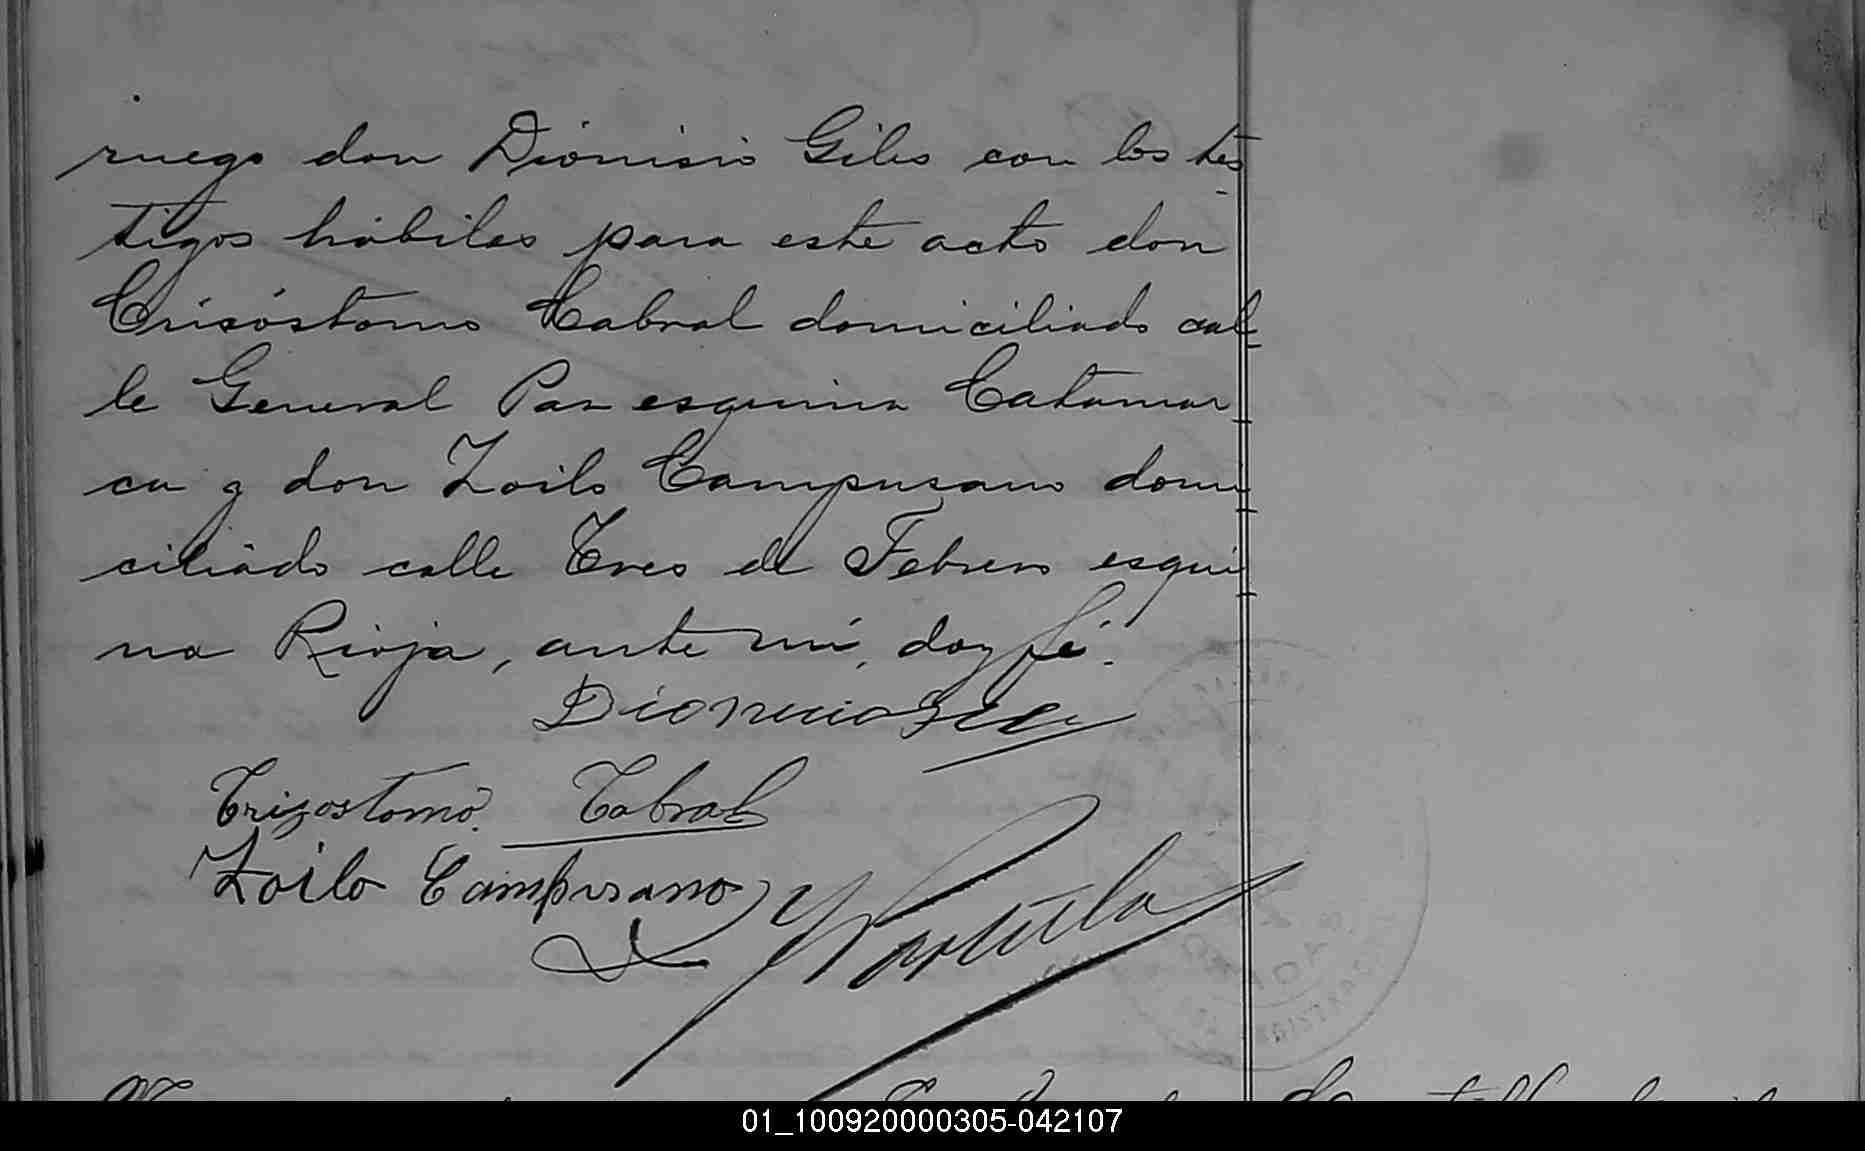 ruego don Dionisio Giles con los tes-
tigos hábiles para este acto don
Crisóstomo Cabral domiciliado cal-
le General Paz esquina Catamar-
ca y don Zoilo Campusano domi-
ciliado calle Tres de Febrero esqui-
na Rioja, ante mí, doy fé.
Dionicio
Crizostomo Cabral
Zoilo Campusano
01_100920000305-042107